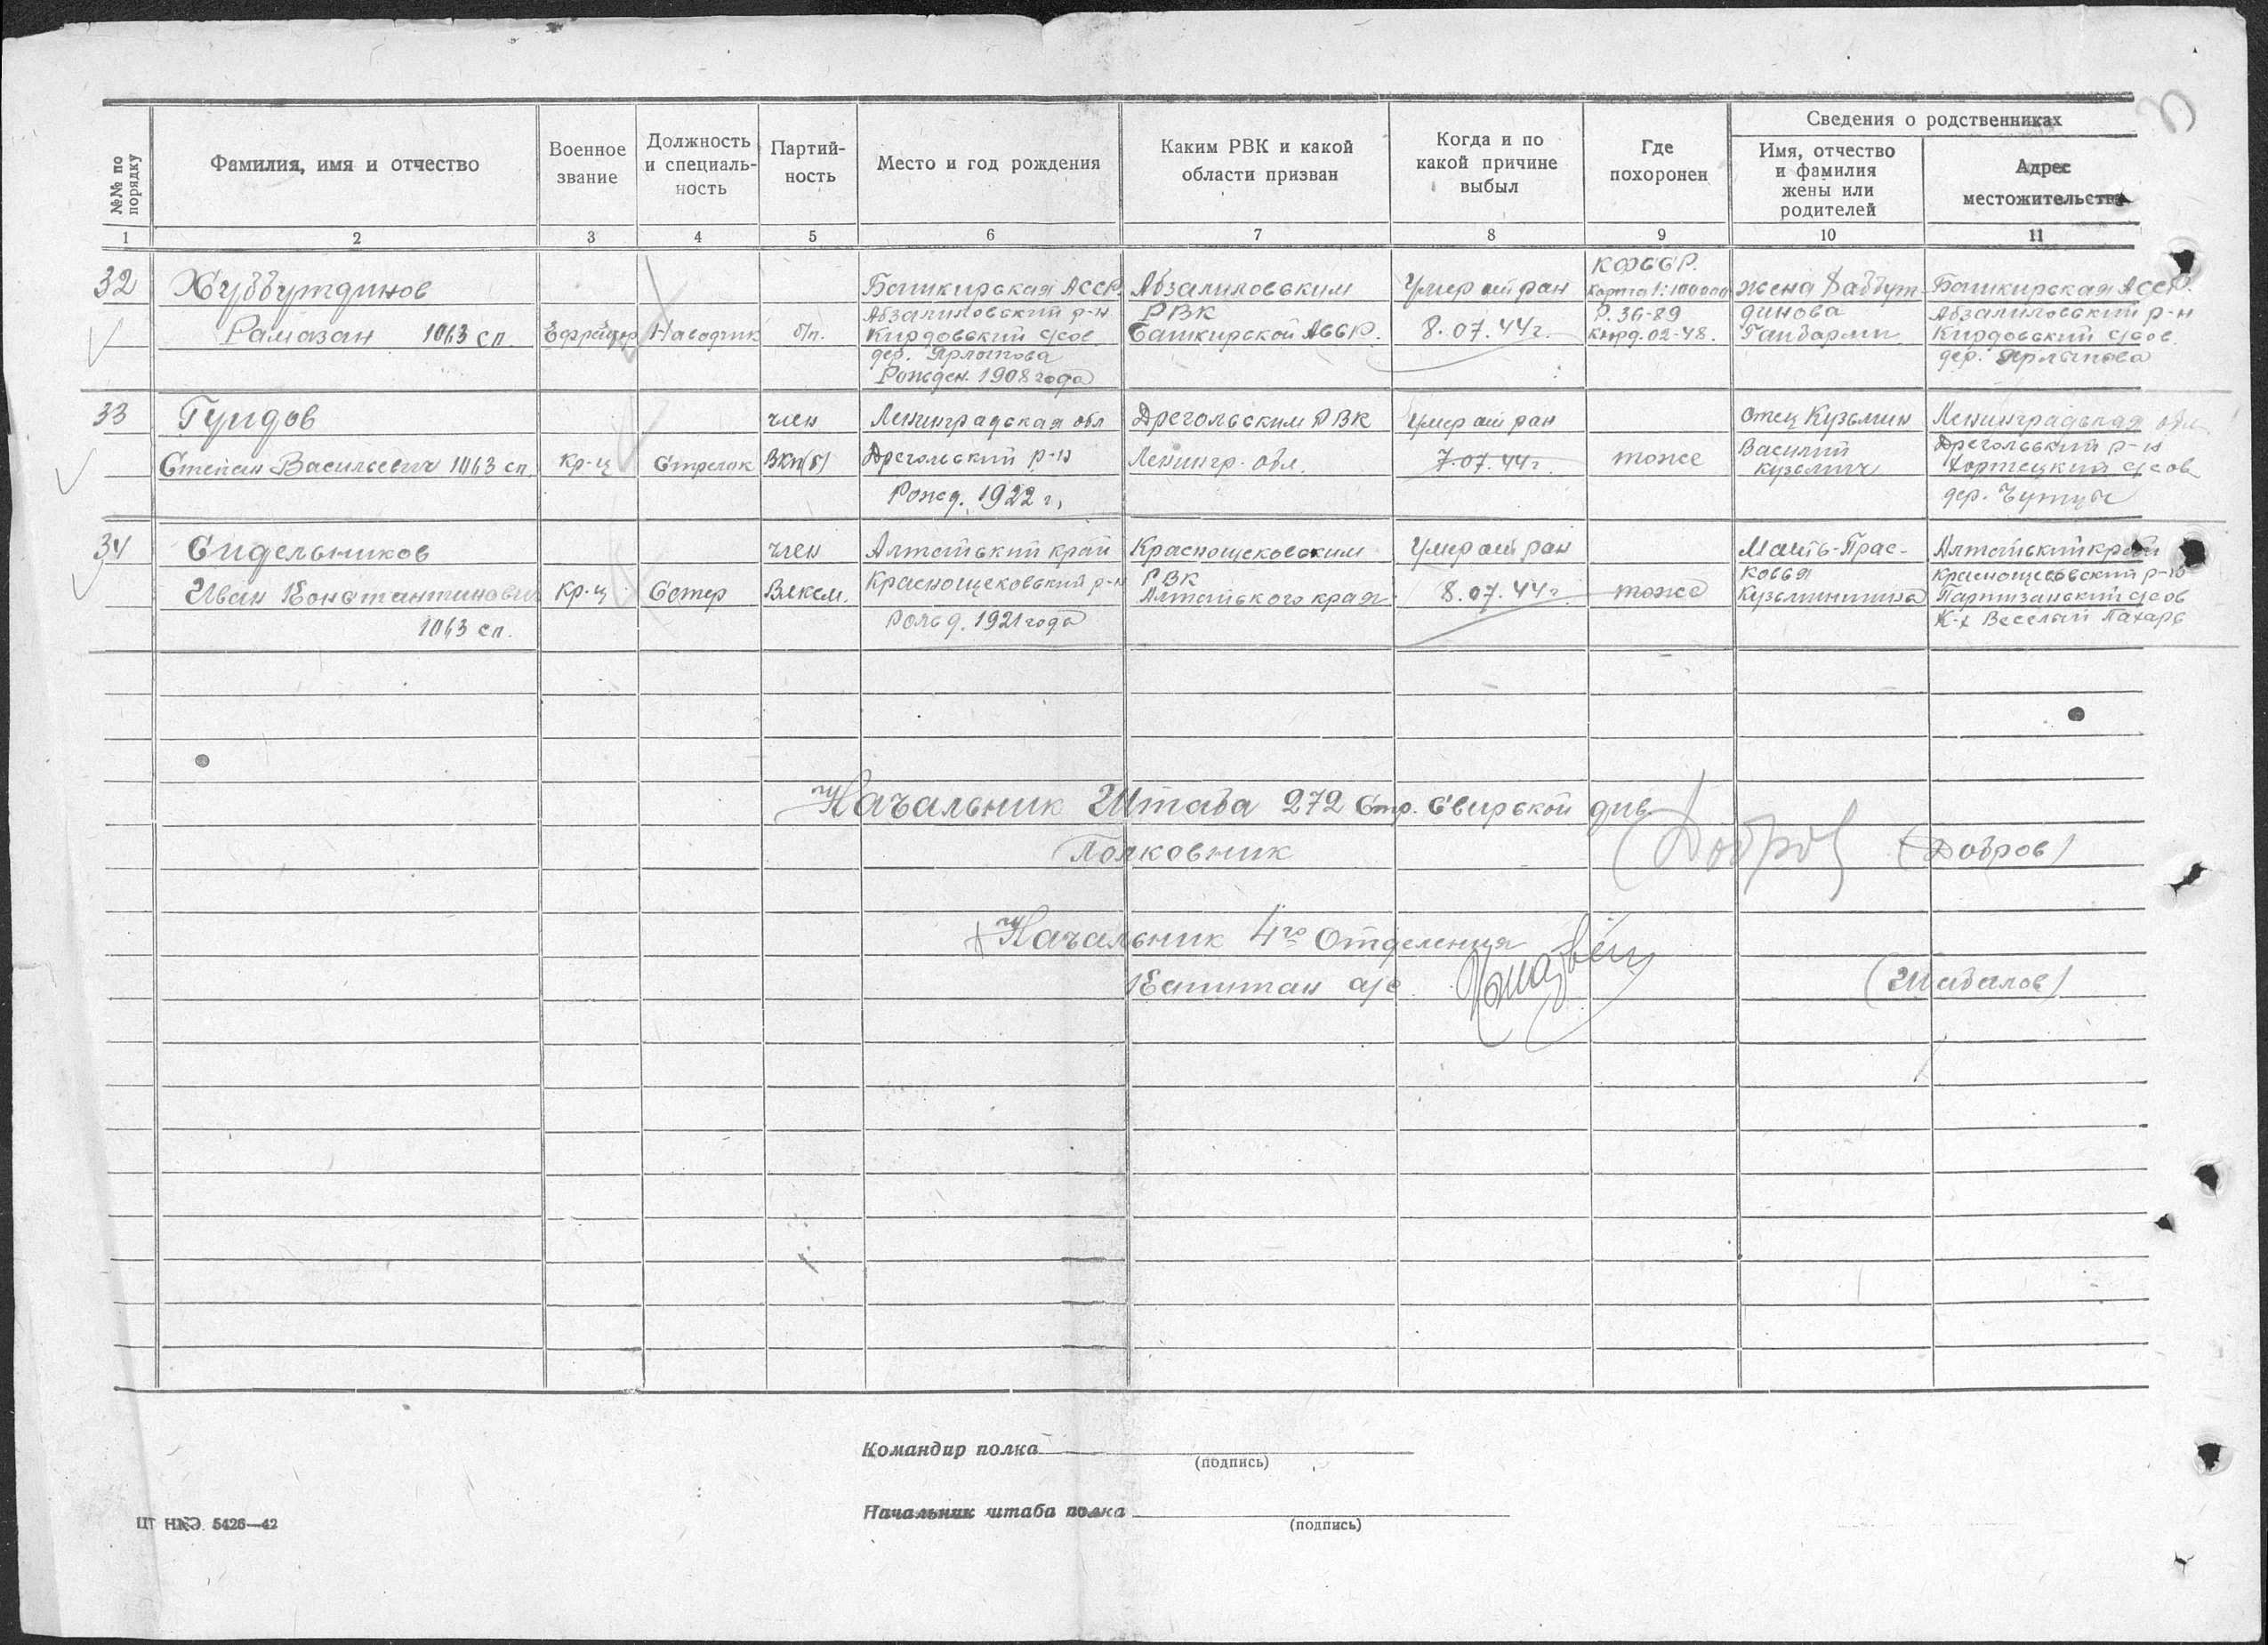 №№ по порядку
Фамилия, имя и отчество
Военное звание
Должность и специаль-ность
Партий-ность
Место и год рождения
Каким РВК и какой области призван
Когда и по какой причине выбыл
Где похоронен
Сведения о родственниках
Имя, отчество и фамилия жены или родителей
Адрес местожительства
1 2 3 4 5 6 7 8 9 10 11
32
Хуббутдинов
Рамазан 1063 сп.
Ефрейтор
Наводчик
б/п.
Башкирская АССР.
Абзалиловский р-н
Кирдовский с/сов.
дер. Ярлыпова
Рожден. 1908 года
Абзалиловским
РВК
Башкирской АССР.
Умер от ран
8.07.44г.
КФССР.
Карта 1:100000
Р. 36-89
Коорд. 02-48.
жена
динова
Башкирская АССР.
Абзалиловский р-н
Кирдовский с/сов.
дер. Ярлыпова
33
Гундов
Степан Васильевич 1063 сп.
кр-ц
Стрелок
член
ВКп(б)
Ленинградская обл
Дрегольский р-н
Рожд. 1922 г.
Дрегольским РВК
Ленингр. обл.
Умер от ран
7.07.44г.
тоже
отец Кузьмин
Василий
Кузьмич
Ленинградская обл
Дрегольский р-н
с/сов
дер.
34
Сидельников
Иван Константинович
1063 сп.
кр-ц
Сапер
член
Влксм.
Алтайский край
Краснощековский р-н
Рожд. 1921 года
Краснощековским
РВК
Алтайского края
Умер от ран
8.07.44г.
тоже
Мать-Прас-
ковья
Кузьминична
Алтайский край
Краснощековский р-н
Партизанский с/сов
К-х Веселый Пахарь
Начальник Штаба 272 Стр. Свирской див.
Полковник (Добров)
Начальник 4го Отделения
Капитан а/с (Шабалов)
Командир полка
(подпись)
Начальник штаба полка
(подпись)
ЦТ НКО 5426—42